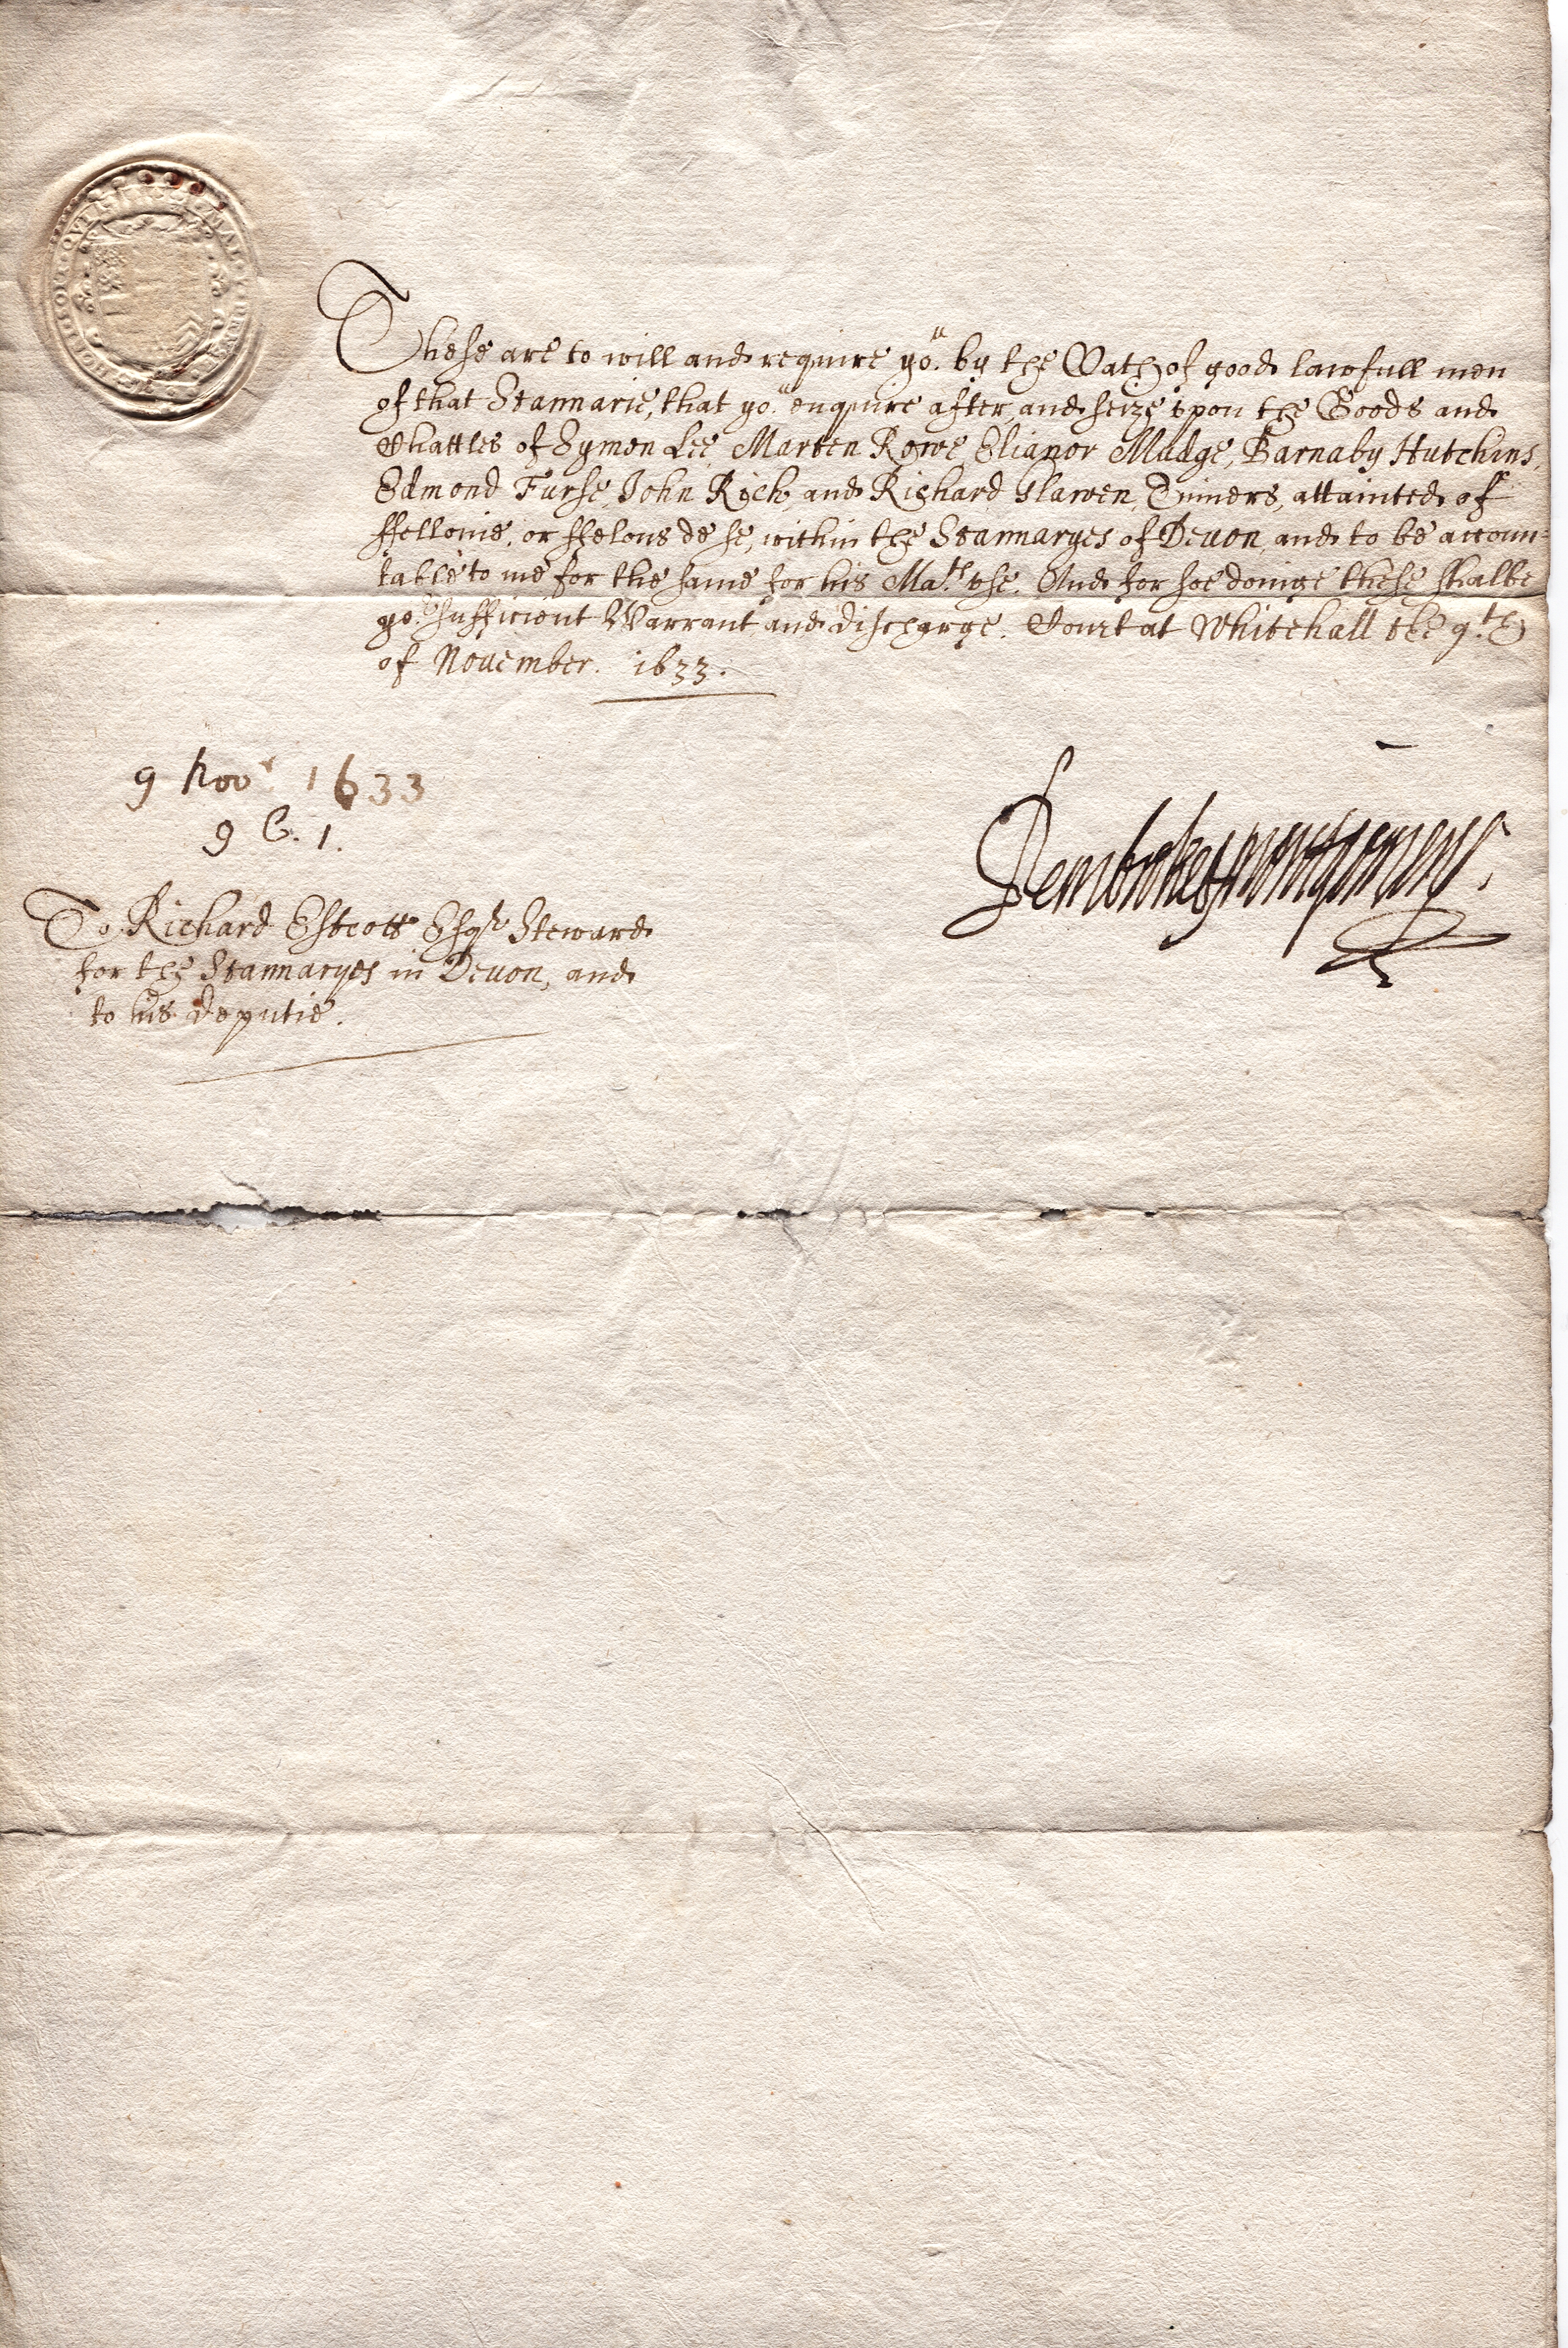 These are to will and require yo.u by the Oath of good lawfull men
of that Stannarie, that yo.u enquire after, and seize vpon the Goods and
Chattles of Symon Lee, Marten Rowe, Elianor Mudge, Barnaby Hutchins,
Edmond Furse, John Rich, and Richard Glawen, Tinners, attainted of
ffellonie, or ffelons de se, within the Stannaryes of Deuon, and to be accoun=
table to me for the same for his Ma.ts vse. And for soe doinge these shalbe
yo.r sufficient Warrant and discharge. Court at Whitehall the 9.th
of November. 1633.
9 Nov.r 1633
9 C. 1.
Pembroke & Montgomery.
To Richard Estcott Esq.r Steward
for the Stannaryes in Deuon, and
to his deputie.